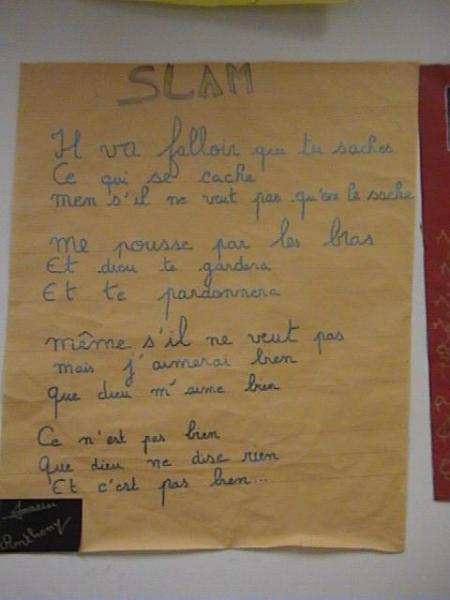 SLAM
Il va falloir que tu saches
Ce qui se cache
mem s'il ne veut pas qu'on le sache
me pousse par les bras
Et dieu te gardera
Et te pardonnera
même s'il ne veut pas
mais j'aimerai bien
que dieu m'aime bien
Ce n'est pas bien
que dieu ne dise rien
Et c'est pas bien...
Anthony